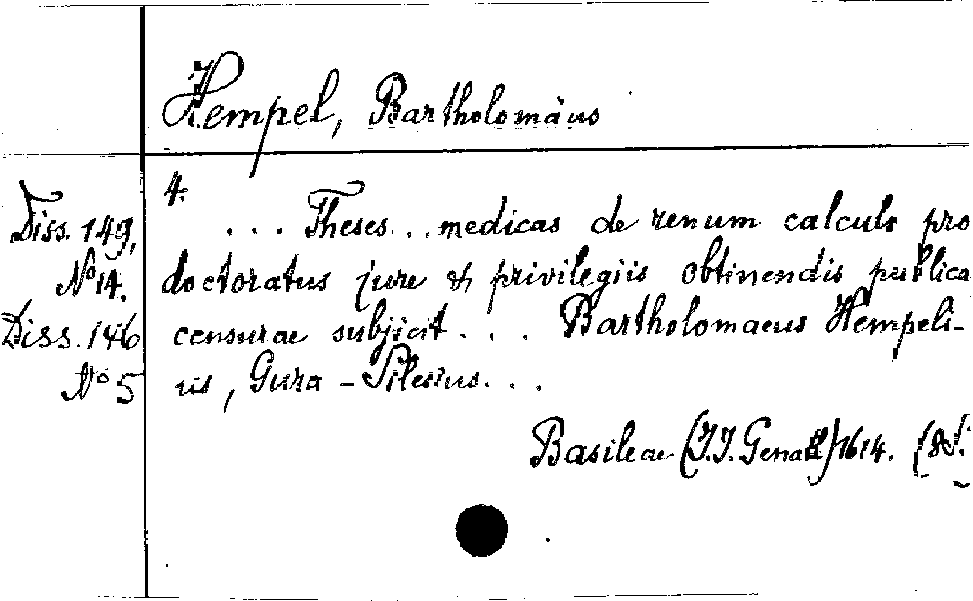 Hempel, Bartholomäus
4.
Diss. 149, ... Theses ... medicas de renum calculo pro
No 14. doctoratus jure & privilegiis obtinendis publica
Diss. 146 censurae subjicit ... Bartholomaeus Hempeli-
No 5 us, Gura-Silesius ...
Basileae (J.J. Genath) 1614. (8 S.